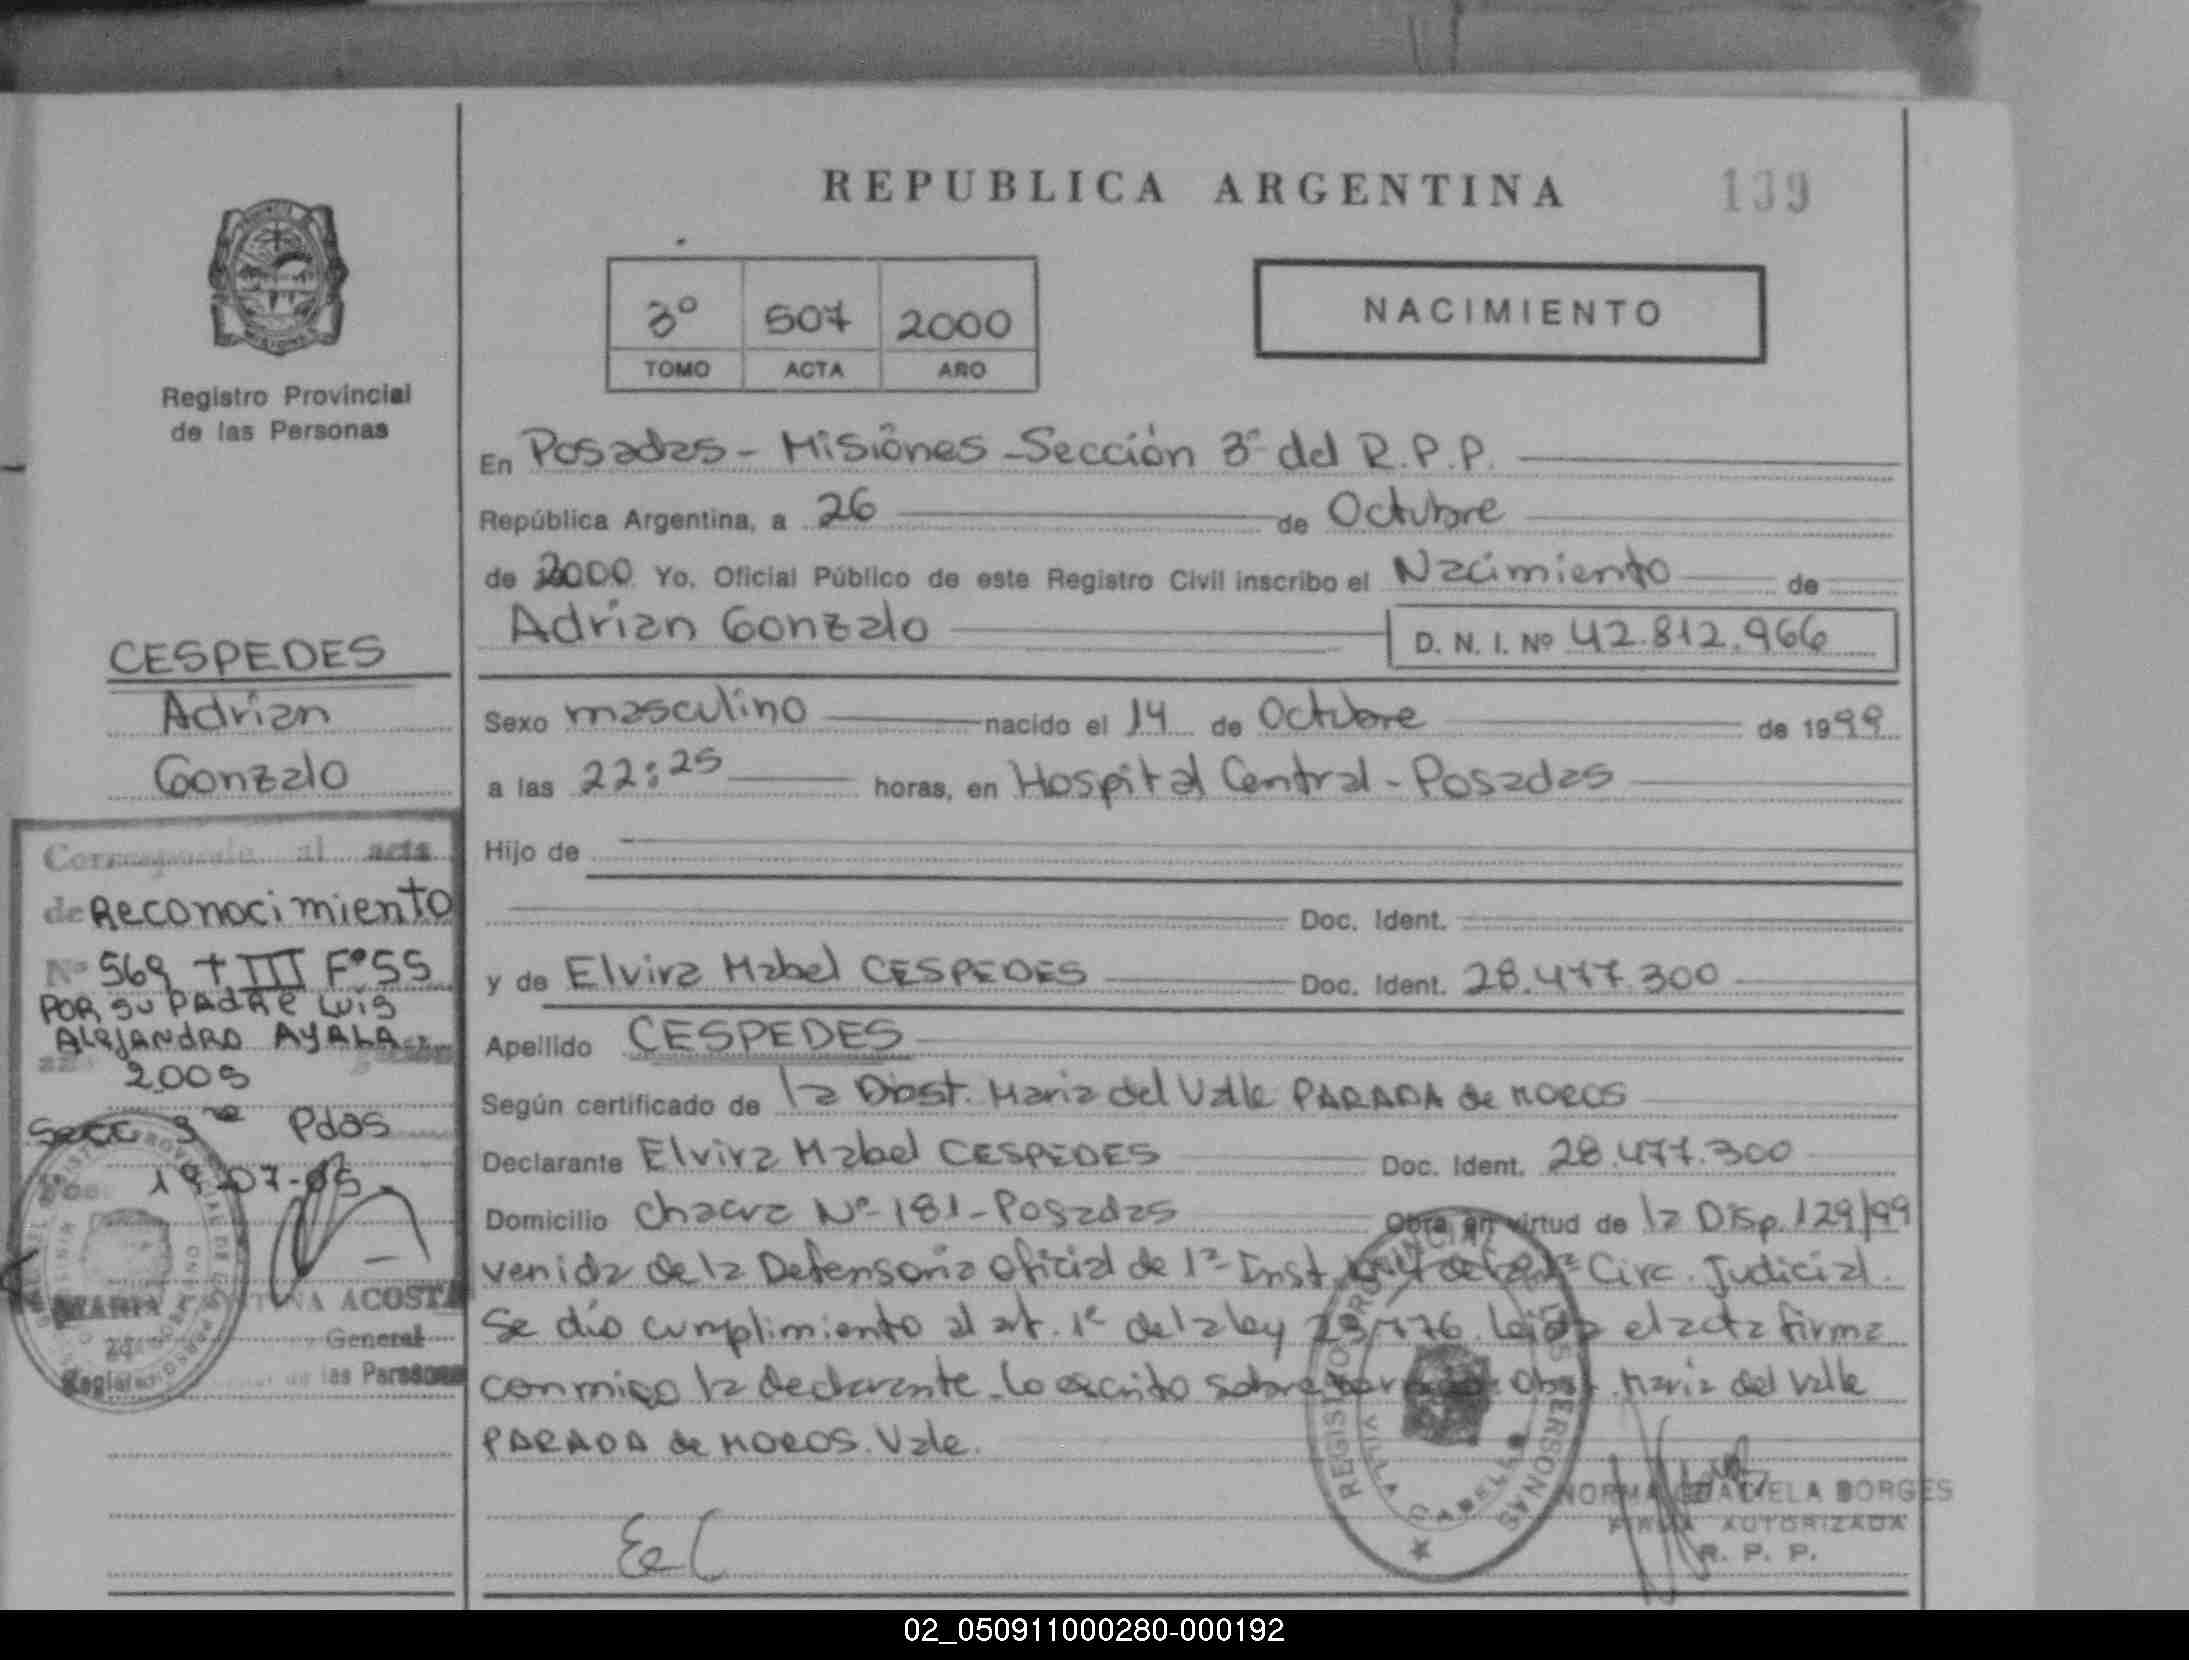 REPUBLICA ARGENTINA
139
3º 507 2000
TOMO ACTA AÑO
NACIMIENTO
Registro Provincial
de las Personas
CESPEDES
Adrian
Gonzalo
Corresponde al acta
de Reconocimiento
Nº 569 T III Fº 55
POR SU PADRE LUIS
ALEJANDRO AYALA
2005
Secc 3ra Pdas
19-07-05
MARIA ACOSTA
General
de las Personas
En Posadas - Misiones - Sección 3ª del R.P.P.
República Argentina, a 26 de Octubre
de 2000 Yo, Oficial Público de este Registro Civil inscribo el Nacimiento de
Adrian Gonzalo D. N. I. Nº 42.812.966
Sexo masculino nacido el 14 de Octubre de 1999
a las 22:25 horas, en Hospital Central - Posadas
Hijo de
Doc. Ident.
y de Elvira Mabel CESPEDES Doc. Ident. 28.477.300
Apellido CESPEDES
Según certificado de la Obst. Maria del Valle PARADA de MOROS
Declarante Elvira Mabel CESPEDES Doc. Ident. 28.477.300
Domicilio Chacra Nº 181 - Posadas Obra en virtud de la Disp. 129/99
venida de la Defensoria Oficial de 1ª Inst. Circ. Judicial.
Se dío cumplimiento al art. 1º de la ley Leída el acta firma
conmigo la declarante. Lo escrito sobre Obst. Maria del Valle
PARADA de MOROS. Vale.
REGISTRO PROVINCIAL DE LAS PERSONAS
VILLA CABELLO
NORMA GRACIELA BORGES
FIRMA AUTORIZADA
R. P. P.
02_050911000280-000192